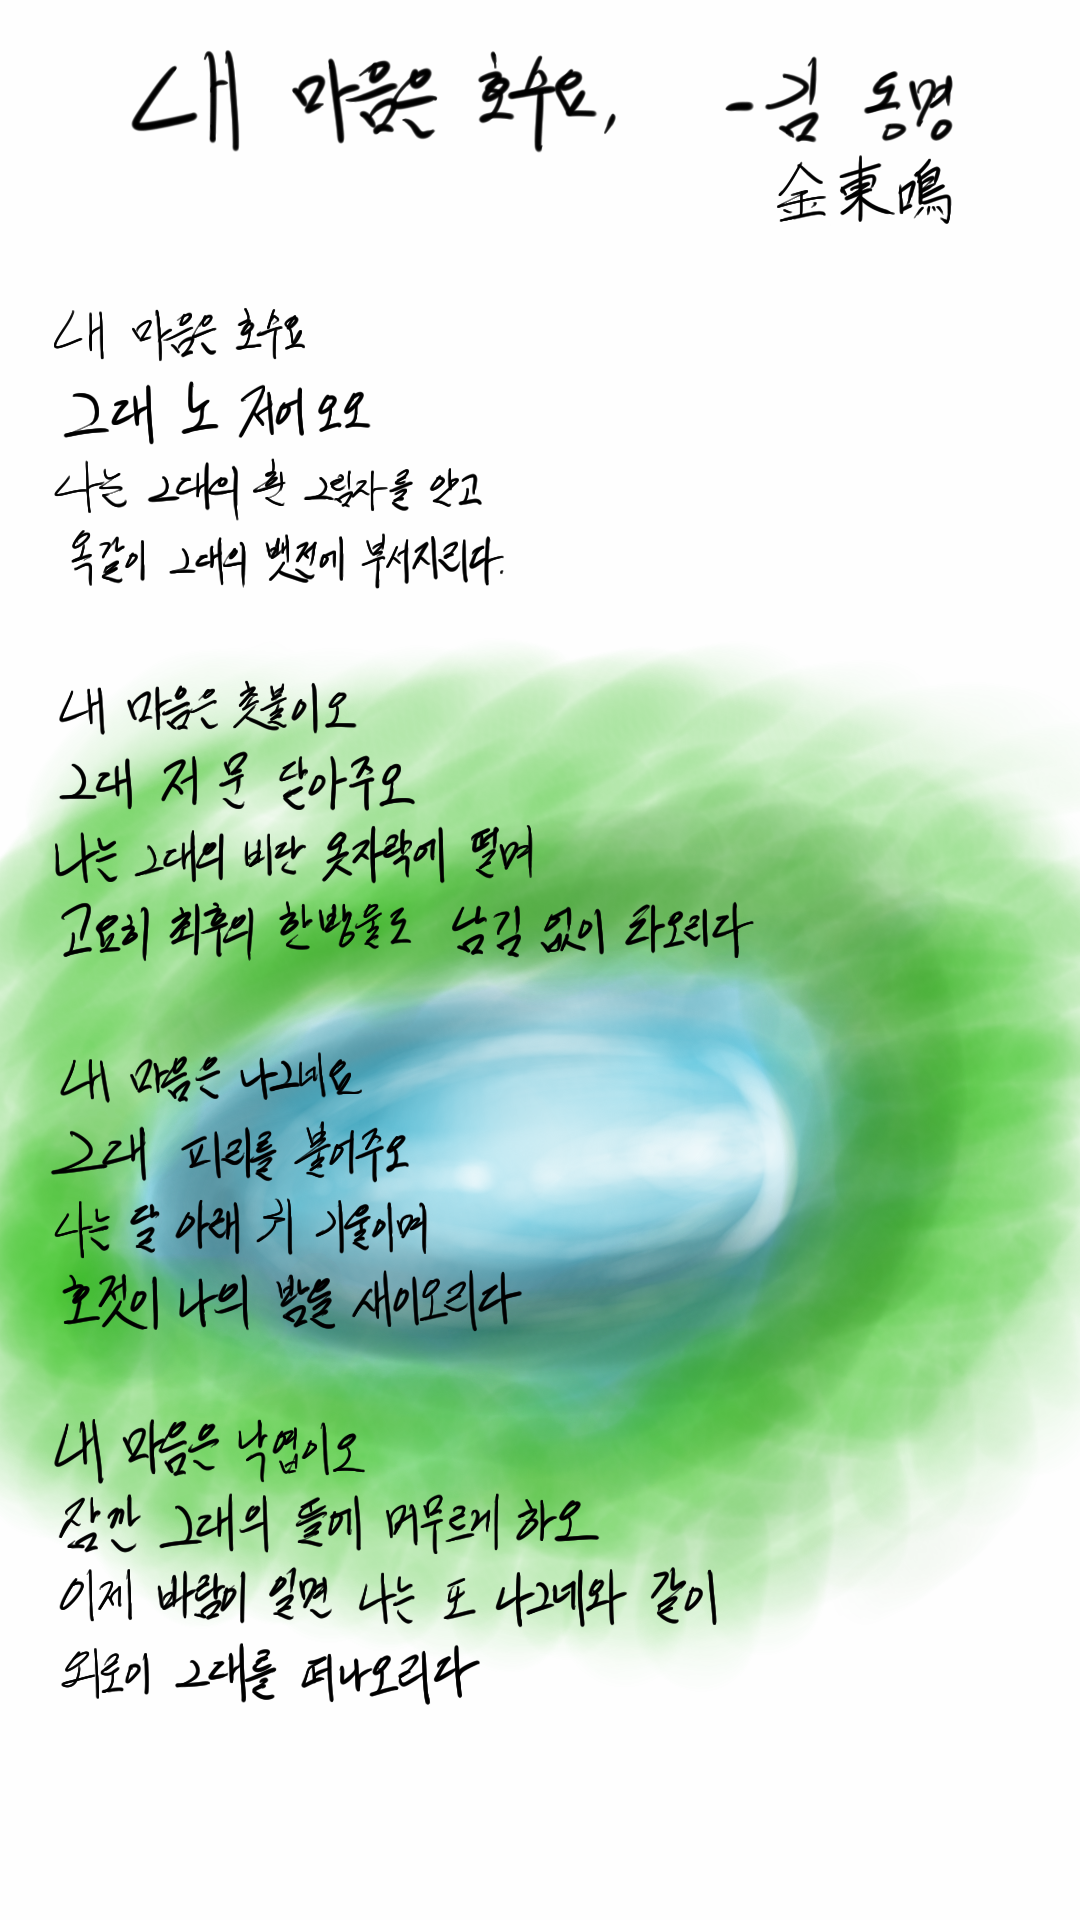 내 마음은 호수요, - 김 동명
金東鳴
내 마음은 호수요
그대 노 저어 오오
나는 그대의 흰 그림자를 안고
옥같이 그대의 뱃전에 부서지리다.
내 마음은 촛불이오
그대 저 문 닫아주오
나는 그대의 비단 옷자락에 떨며
고요히 최후의 한방울도 남김 없이 타오리다
내 마음은 나그네요
그대 피리를 불어주오
나는 달 아래 귀 기울이며
호젓이 나의 밤을 새이오리다
내 마음은 낙엽이오
잠깐 그대의 뜰에 머무르게 하오
이제 바람이 일면 나는 또 나그네와 같이
외로이 그대를 떠나오리다